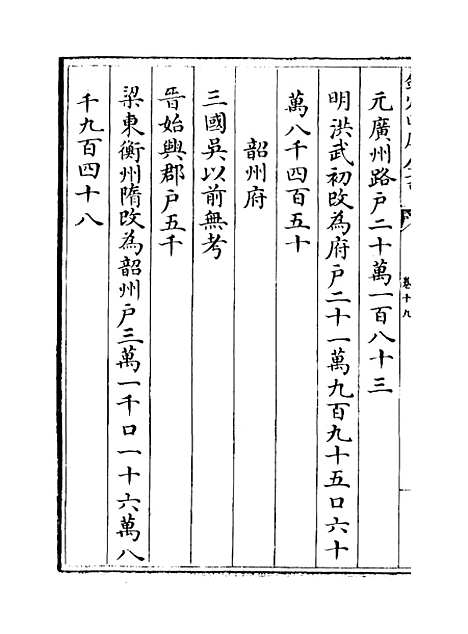 卷十九
元廣州路戶二十萬一百八十三
明洪武初改為府戶二十一萬九百九十五口六十
萬八千四百五十
韶州府
三國吳以前無考
晉始興郡戶五千
梁東衡州隋改為韶州戶三萬一千口一十六萬八
千九百四十八